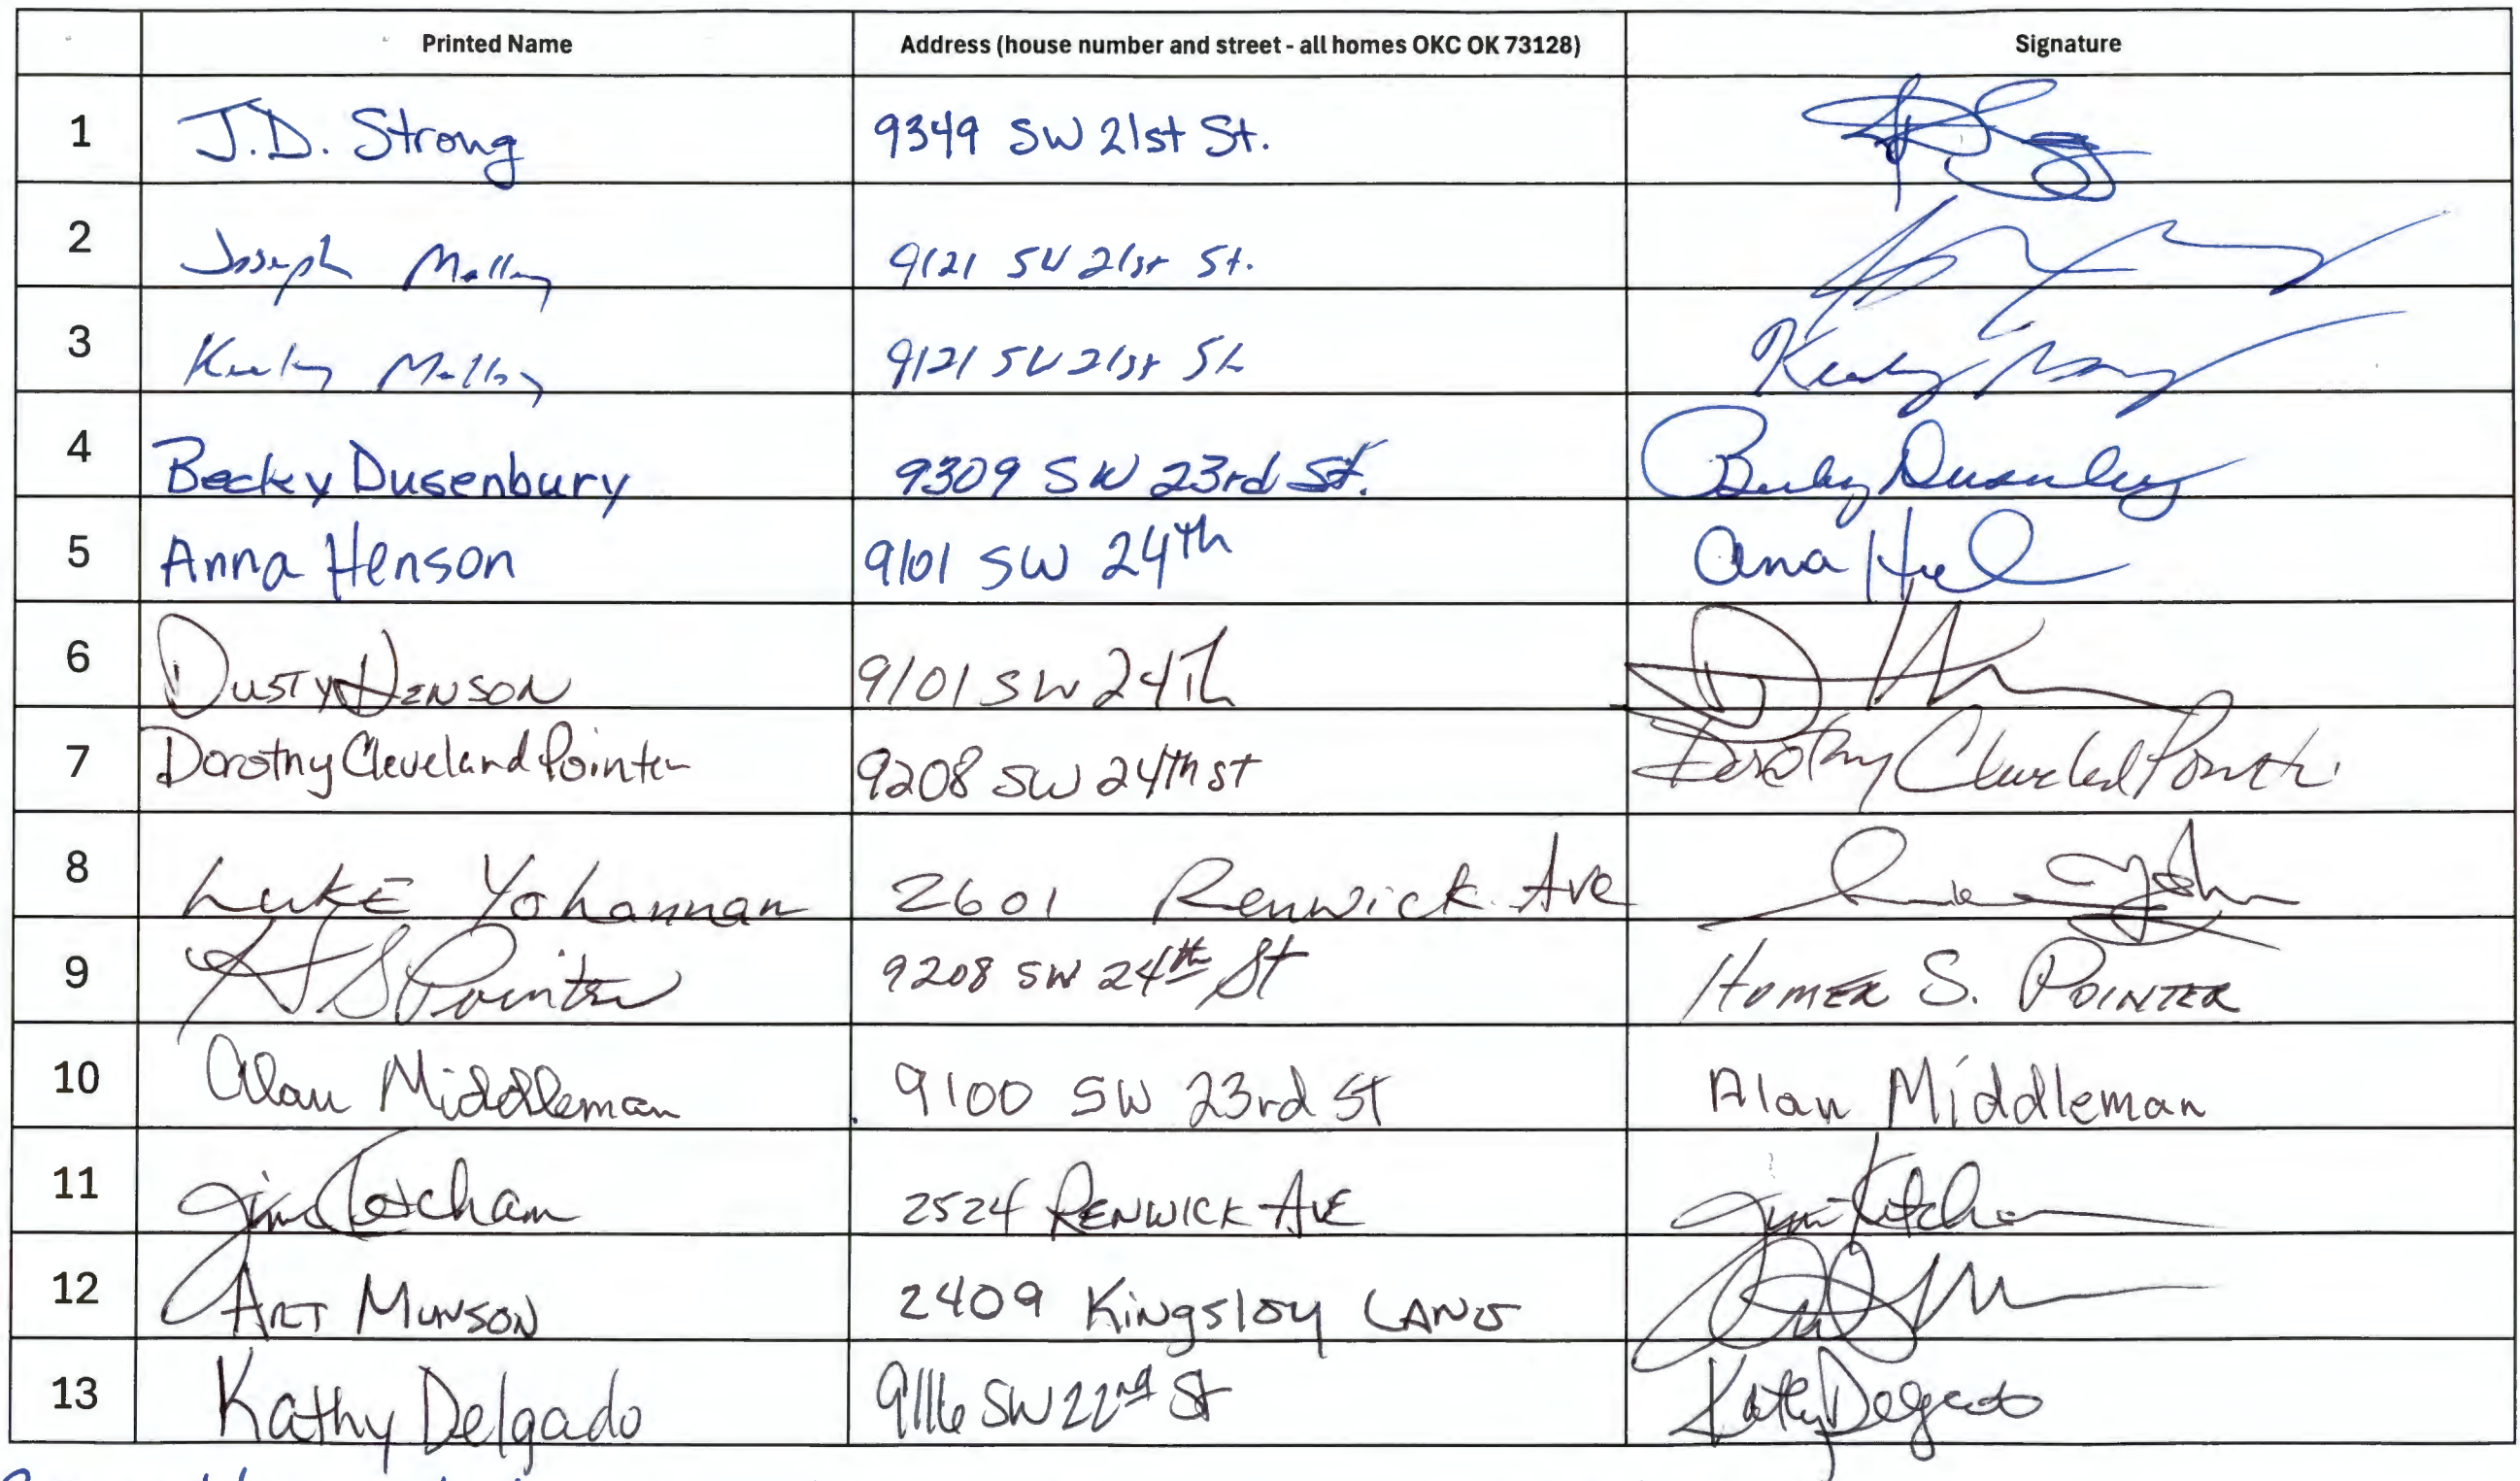 Printed Name Address (house number and street - all homes OKC OK 73128) Signature
1 J.D. Strong 9349 SW 21st St.
2 Joseph Malloy 9121 SW 21st St.
3 Keely Malloy 9121 SW 21st St
4 Becky Dusenbury 9309 SW 23rd St. Becky Dusenbury
5 Anna Henson 9101 SW 24th Anna
6 DUSTY HENSON 9101 SW 24Th
7 Dorothy Cleveland Pointer 9208 SW 24th ST Dorothy Cleveland Pointer
8 LUKE Yohannan 2601 Renwick Ave
9 H S Pointer 9208 SW 24th St HOMER S. POINTER
10 Alan Middleman 9100 SW 23rd ST Alan Middleman
11 Jim Ketcham 2524 RENWICK AVE Jim Ketcham
12 ART MUNSON 2409 Kingsley LANE
13 Kathy Delgado 9116 SW 22nd St Kathy Delgado